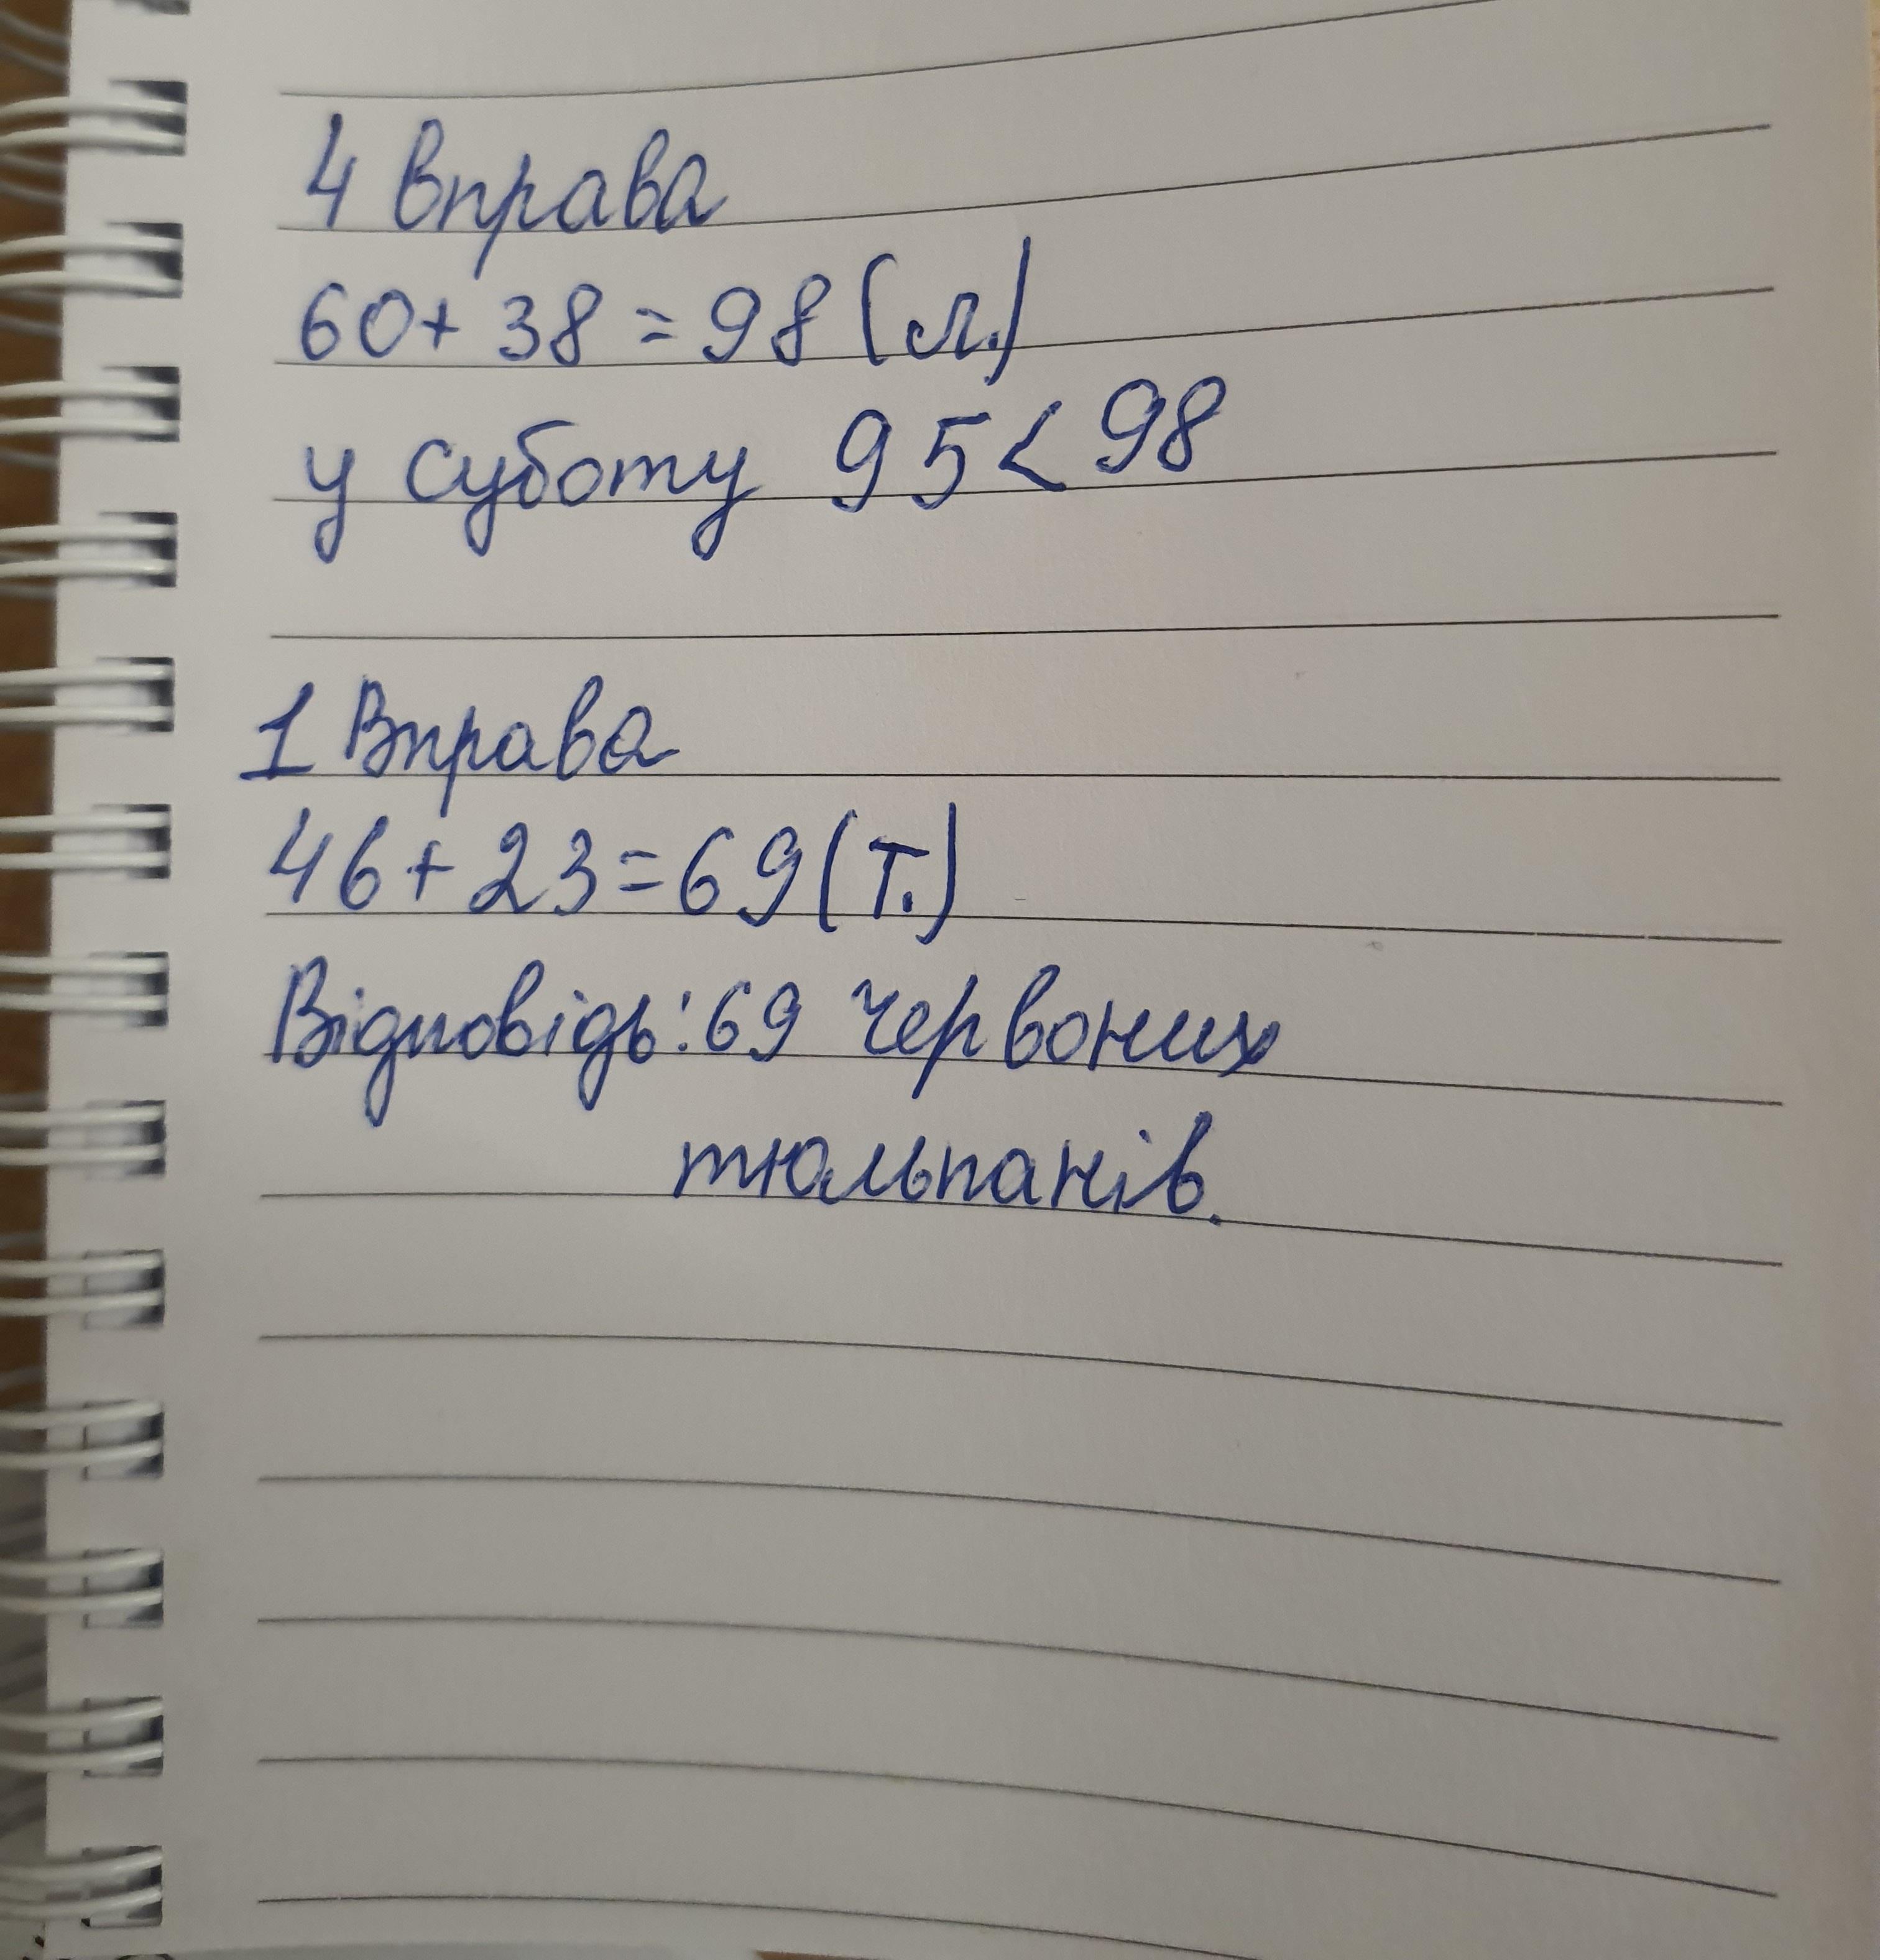 4 вправа
60 + 38 = 98 (л.)
у суботу 95 < 98
1 Вправа
46 + 23 = 69 (т.)
Відповідь: 69 червоних
тюльпанів.